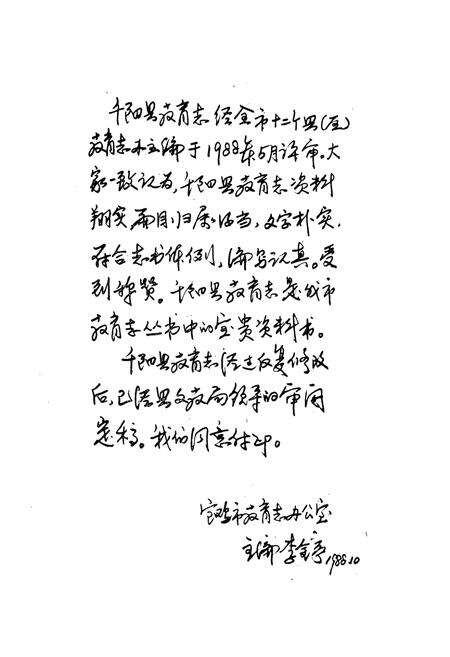 千阳县教育志经全市十二个县(区)
教育志主编于1988年5月评审。大
家一致认为，千阳县教育志资料
翔实，而目归属恰当，文字朴实，
符合志书体例，编写认真。受
到称赞。千阳县教育志是我市
教育志丛书中的宝贵资料书。
千阳县教育志经过反复修改
后，已经县文教局领导的审阅
定稿。我们同意付印。
宝鸡市教育志办公室
主编 李全亭 1988.10